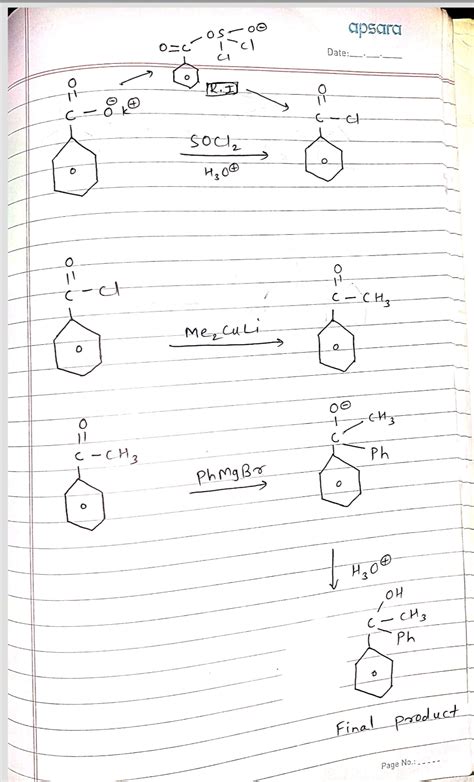 apsara
Date:__.__.__
O=C-OS-O⊖
Cl Cl
R.I
O
C-O⊖ K⊕
SOCl2
H3O⊕
O
C-Cl
O
C-Cl
Me2CuLi
O
C-CH3
O
C-CH3
PhMgBr
O⊖
C CH3
Ph
H3O⊕
OH
C-CH3
Ph
Final product
Page No.:-----